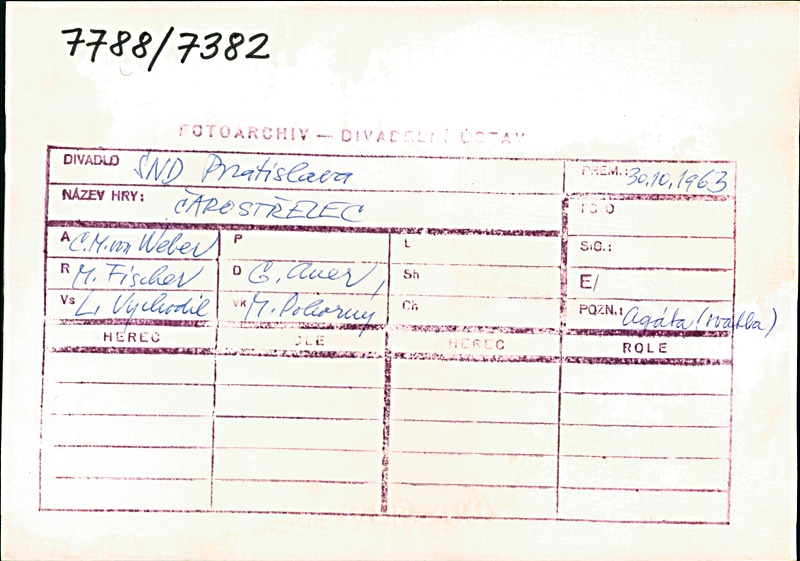 7788/7382
FOTOARCHIV — DIVADELNÍ ÚSTAV
DIVADLO SND Bratislava PREM.: 30.10.1963
NÁZEV HRY: ČAROSTŘELEC FOTO
A C. M. von Weber P L SIG.:
R M. Fischer D G. Auer, Sh E/
Vs L. Vychodil Vk M. Pokorný Ch POZN.: Agáta (svatba)
HEREC ROLE HEREC ROLE